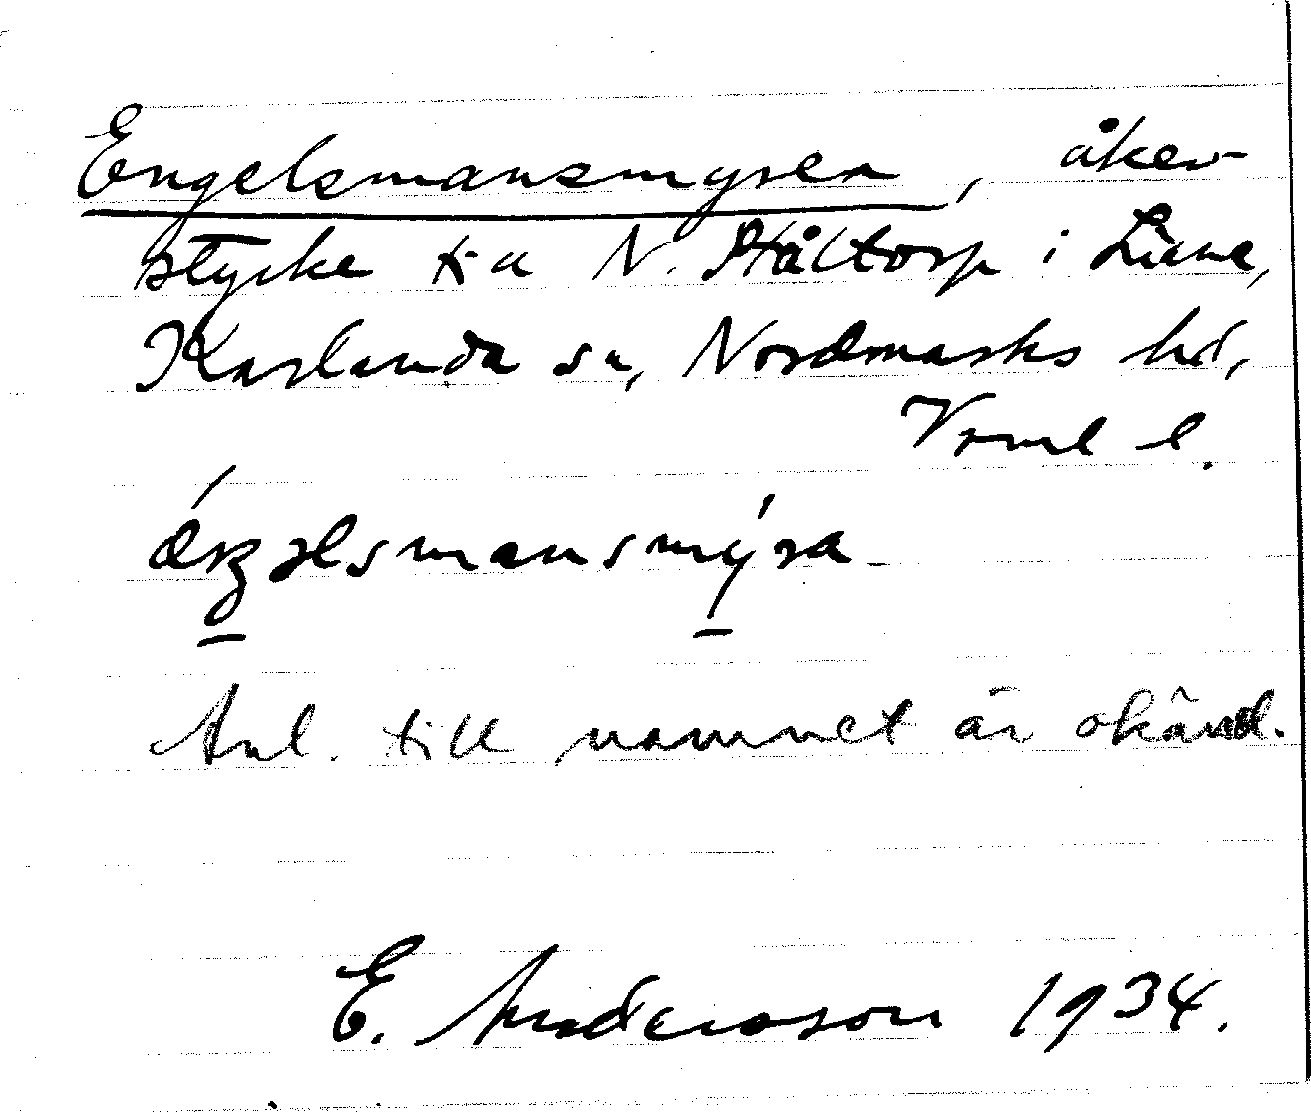 Engelsmansmyren, åker-
stycke till N. Ståltorp i Liane,
Karlanda sn, Nordmarks hd,
Vrml l.
ǽŋəlsmansmýra
Anl. till namnet är okänd.
E. Andersson 1934.